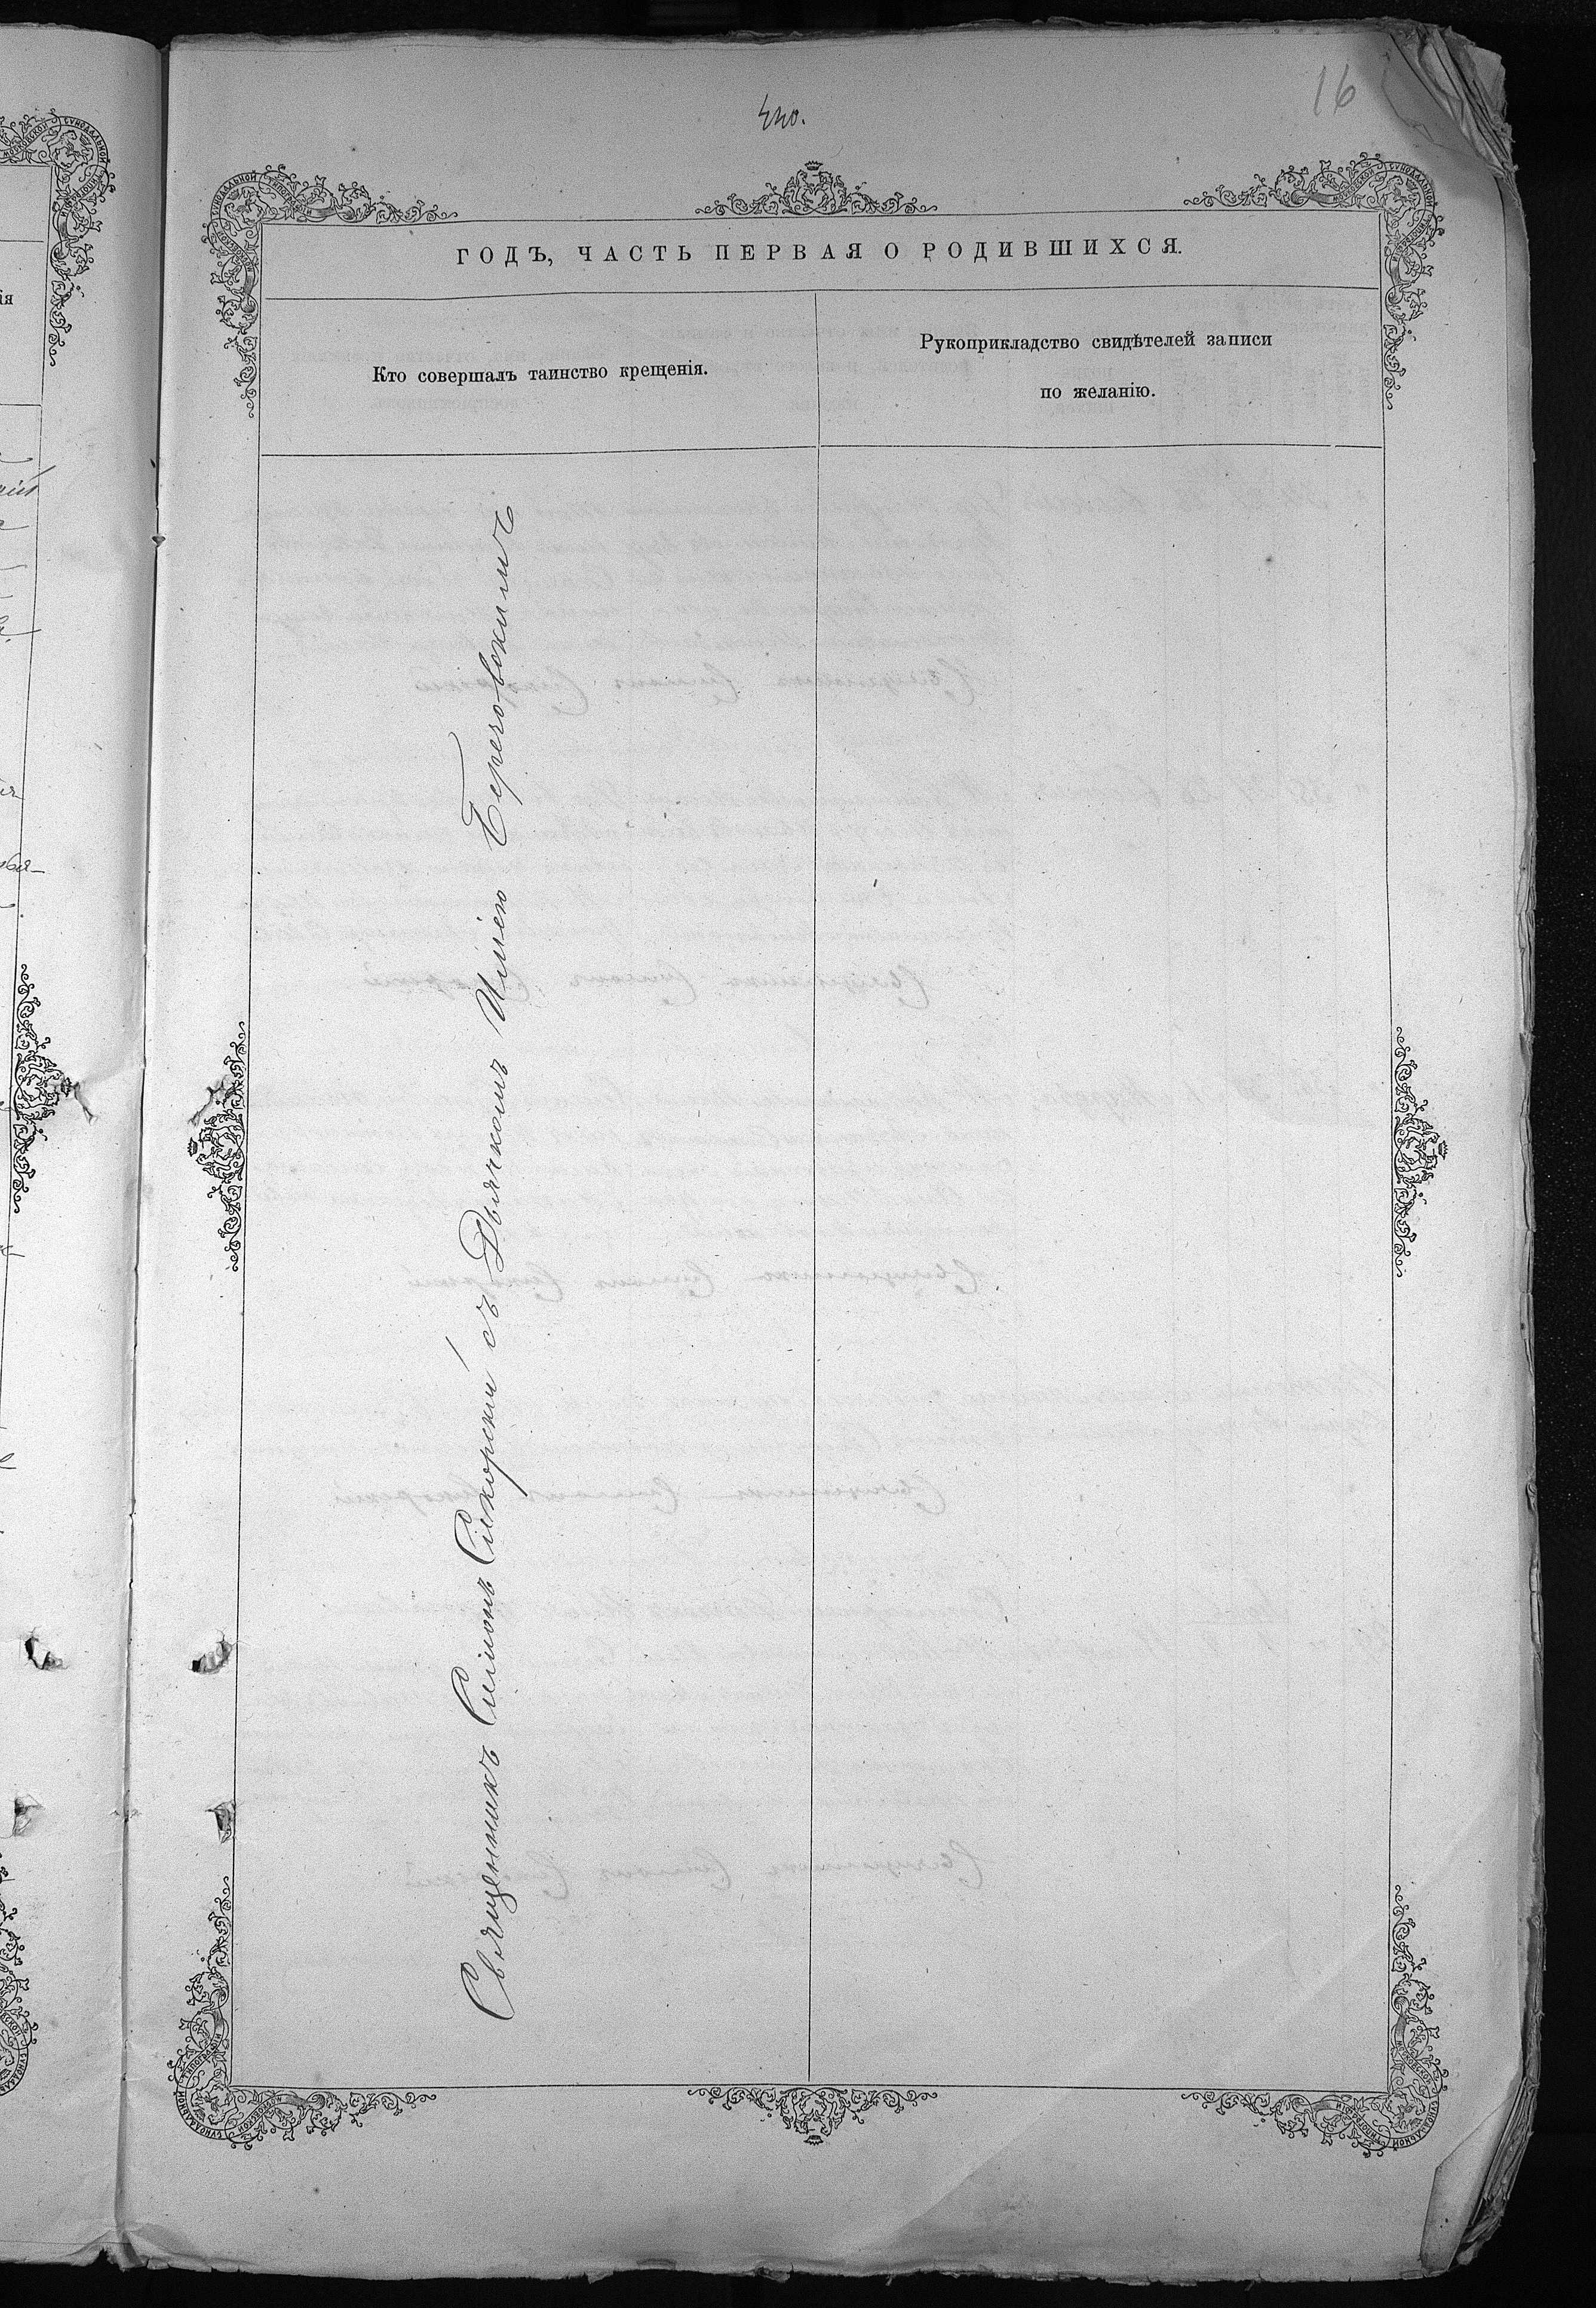 16
ГОДЪ, ЧАСТЬ ПЕРВАЯ О РОДИВШИХСЯ.
Кто совершалъ таинство крещенія.
Рукоприкладство свидѣтелей записи
по желанію.
Священникъ Симонъ Сикорскій съ Дьячкомъ Иліею Березовскимъ